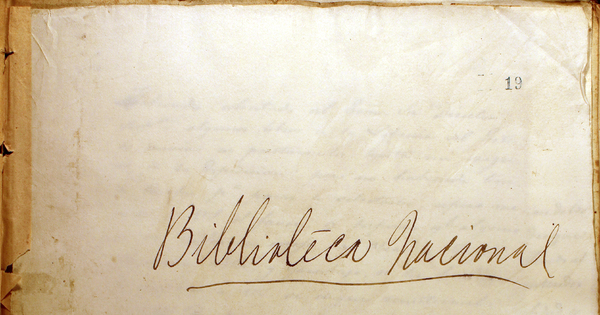 19
Bibliotéca Nacional